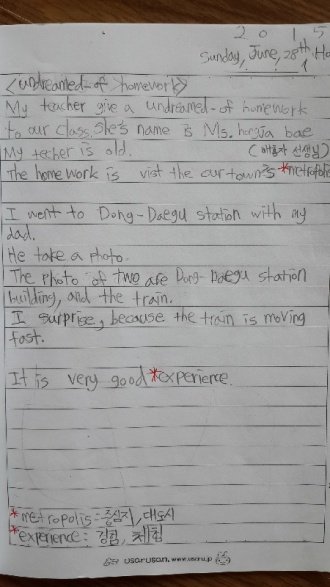 2015
Sunday, June, 28th, Ho
<undreamed-of homework>
My teacher give a undreamed-of homework
to our class. She's name is Ms. hongja bae
My techer is old.
The home work is vist the our town's *metropolis
I went to Dong-Daegu station with my
dad.
He take a photo.
The photo of two are Dong-Daegu station
building, and the train.
I surprise, because the train is moving
fast.
It is very good *experience.
*metropolis: 중심지, 대도시
*experience: 경험, 체험
usarusan. www.usaru.jp